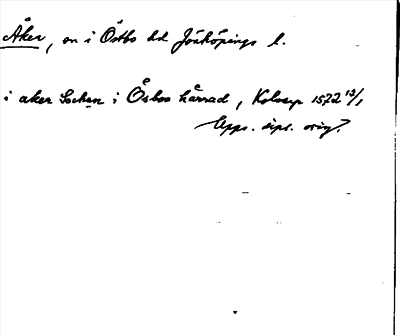 Åker, sn i Östbo hd Jönköpings l.
i aker Sochen i Ösboo härrad, 1572 13/1
Upps. dipl. orig.